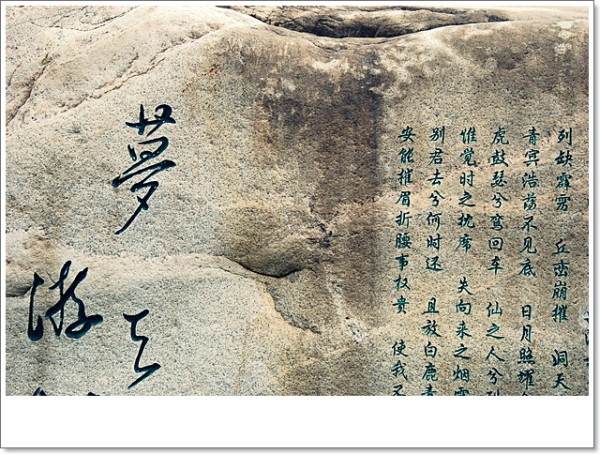 列缺霹雳 丘峦崩摧 洞天
青冥浩荡不见底 日月照耀
虎鼓瑟兮鸾回车 仙之人兮列
惟觉时之枕席 失向来之烟霞
别君去兮何时还 且放白鹿青
安能摧眉折腰事权贵 使我不
夢
游天